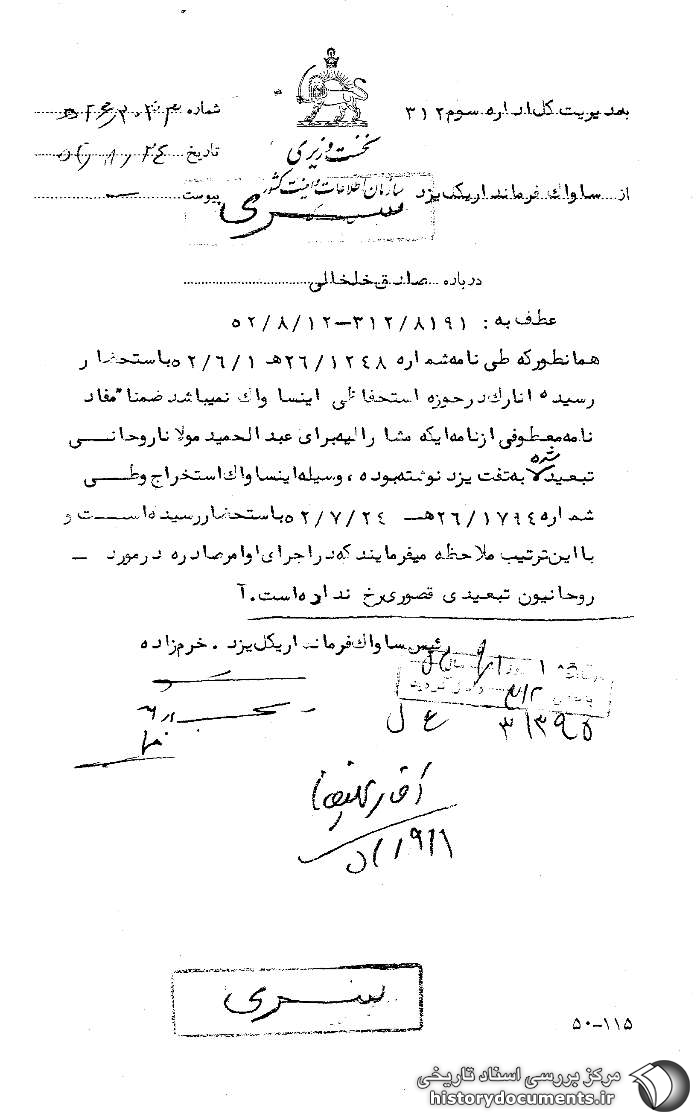 بمدیریت کل اداره سوم ۳۱۲
شماره
نخست وزیری
تاریخ
سازمان اطلاعات و امنیت کشور
از ساواک فرمانداریکل یزد
پیوست
سری
درباره صادق خلخالی
عطف به : ۳۱۲/۸۱۹۱-۵۲/۸/۱۲
همانطور که طی نامه شماره ۲۶/۱۲۴۸ه ۵۲/۶/۱ باستحضار
رسیده انارک در حوزه استحفاظی اینساواک نمیباشد ضمنا" مفاد
نامه معطوفی از نامه ایکه مشارالیه برای عبدالحمید مولانا روحانی
تبعید شده به تفت یزد نوشته بوده ، وسیله اینساواک استخراج وطی
شماره ۲۶/۱۷۹۴ه ۵۲/۷/۲۴ باستحضار رسیده است و
با این ترتیب ملاحظه میفرمایند که در اجرای اوامر صادره در مورد
روحانیون تبعیدی قصوری رخ نداده است . آ
رئیس ساواک فرمانداریکل یزد . خرم زاده
۳۱۳۹۵
سری
۵۰-۱۱۵
مرکز بررسی اسناد تاریخی
historydocuments.ir